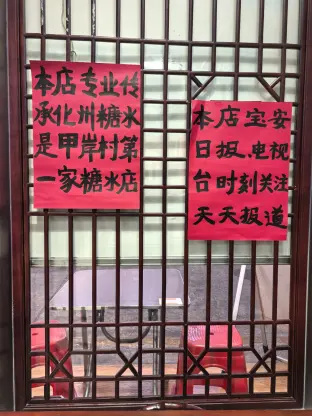 本店专业传
承化州糖水
是甲岸村第
一家糖水店
本店宝安
日报、电视
台时刻关注
天天报道